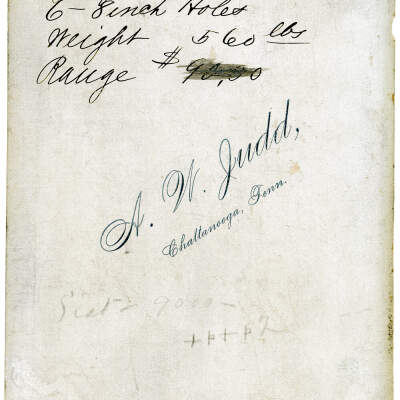 6 - 8 inch Holes
Weight 560 lbs
Range $
A. W. Judd,
Chattanooga, Tenn.
9000 -